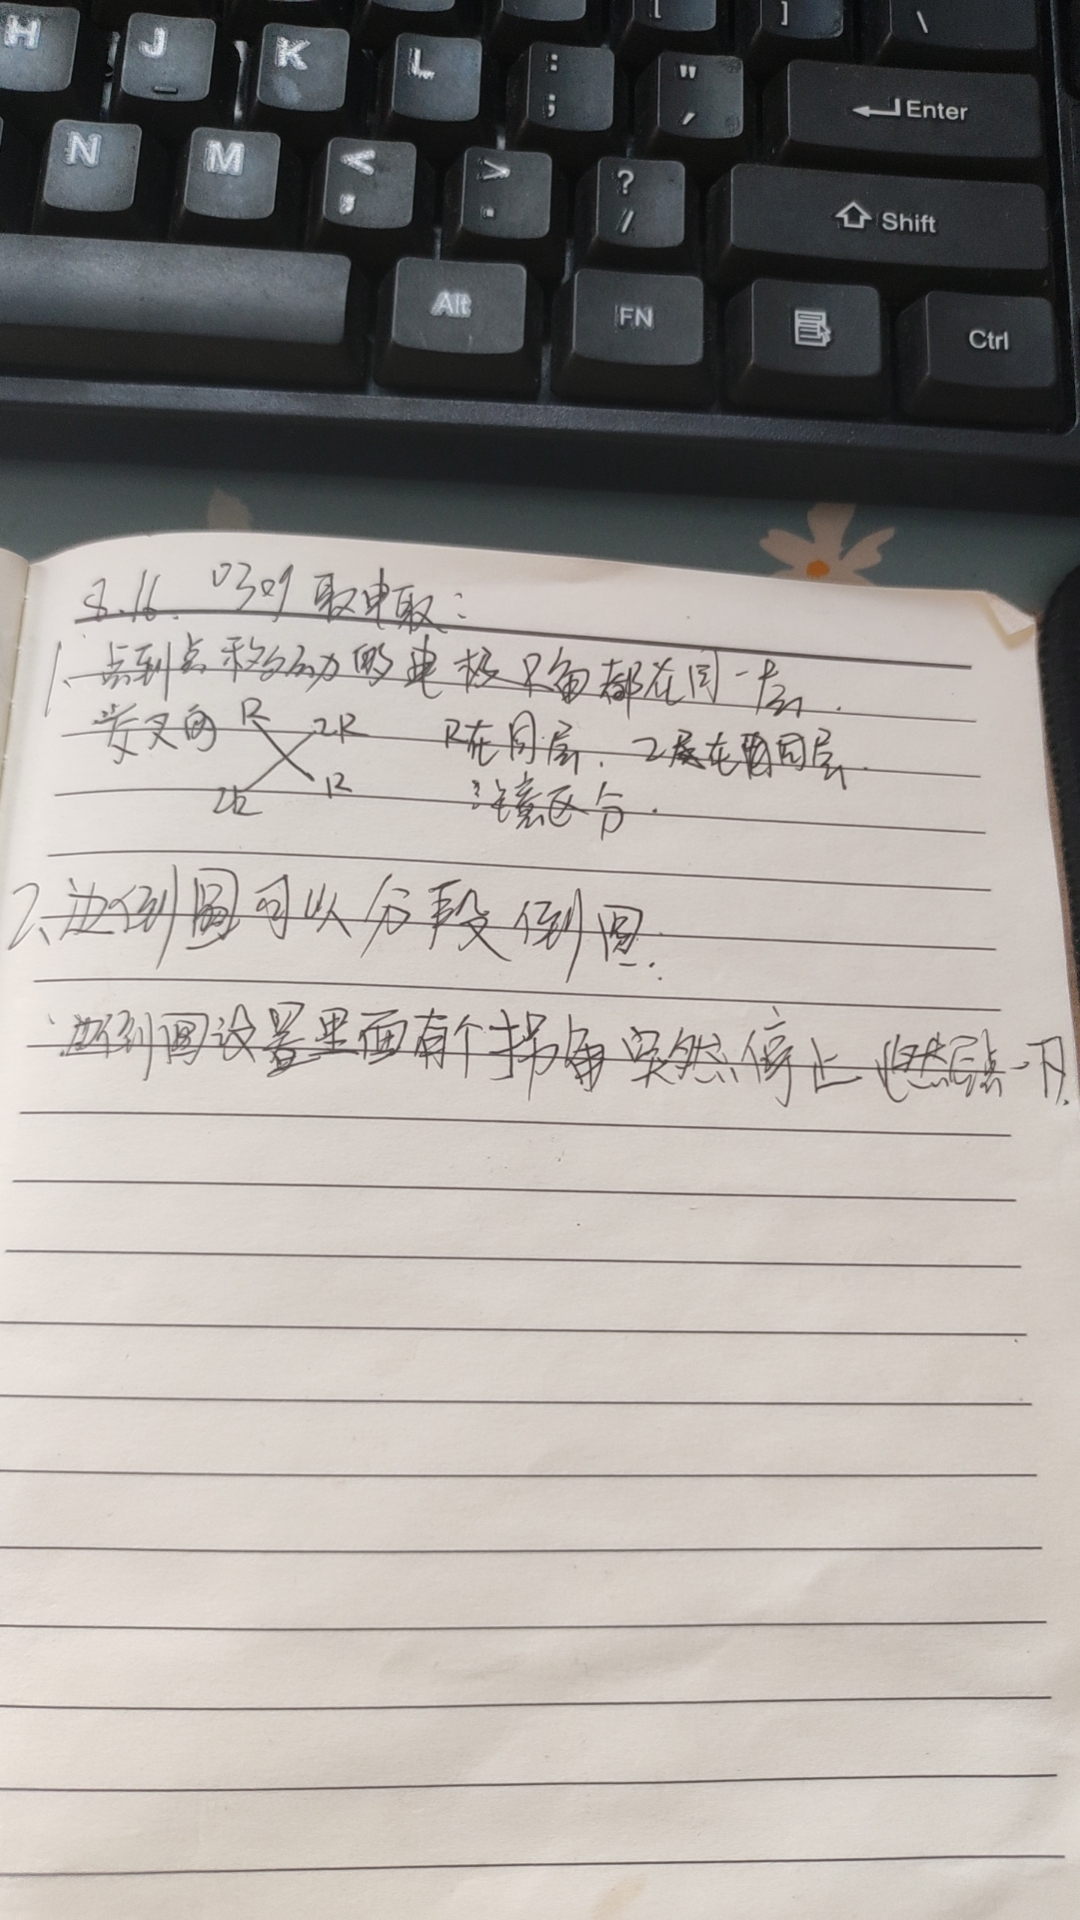 H J K L : ; " ' Enter
[ ] \
N M < , > . ? / Shift
Alt FN Ctrl
8.16. 0309 取电取:
1. 点到点移动的电极R角都在同一层.
交叉的 R 2R R在同层. 2R在同层.
2R R 注意区分.
2、边倒圆可以分段倒圆.
边倒圆设置里面有个拐角突然停止 然后点一下.